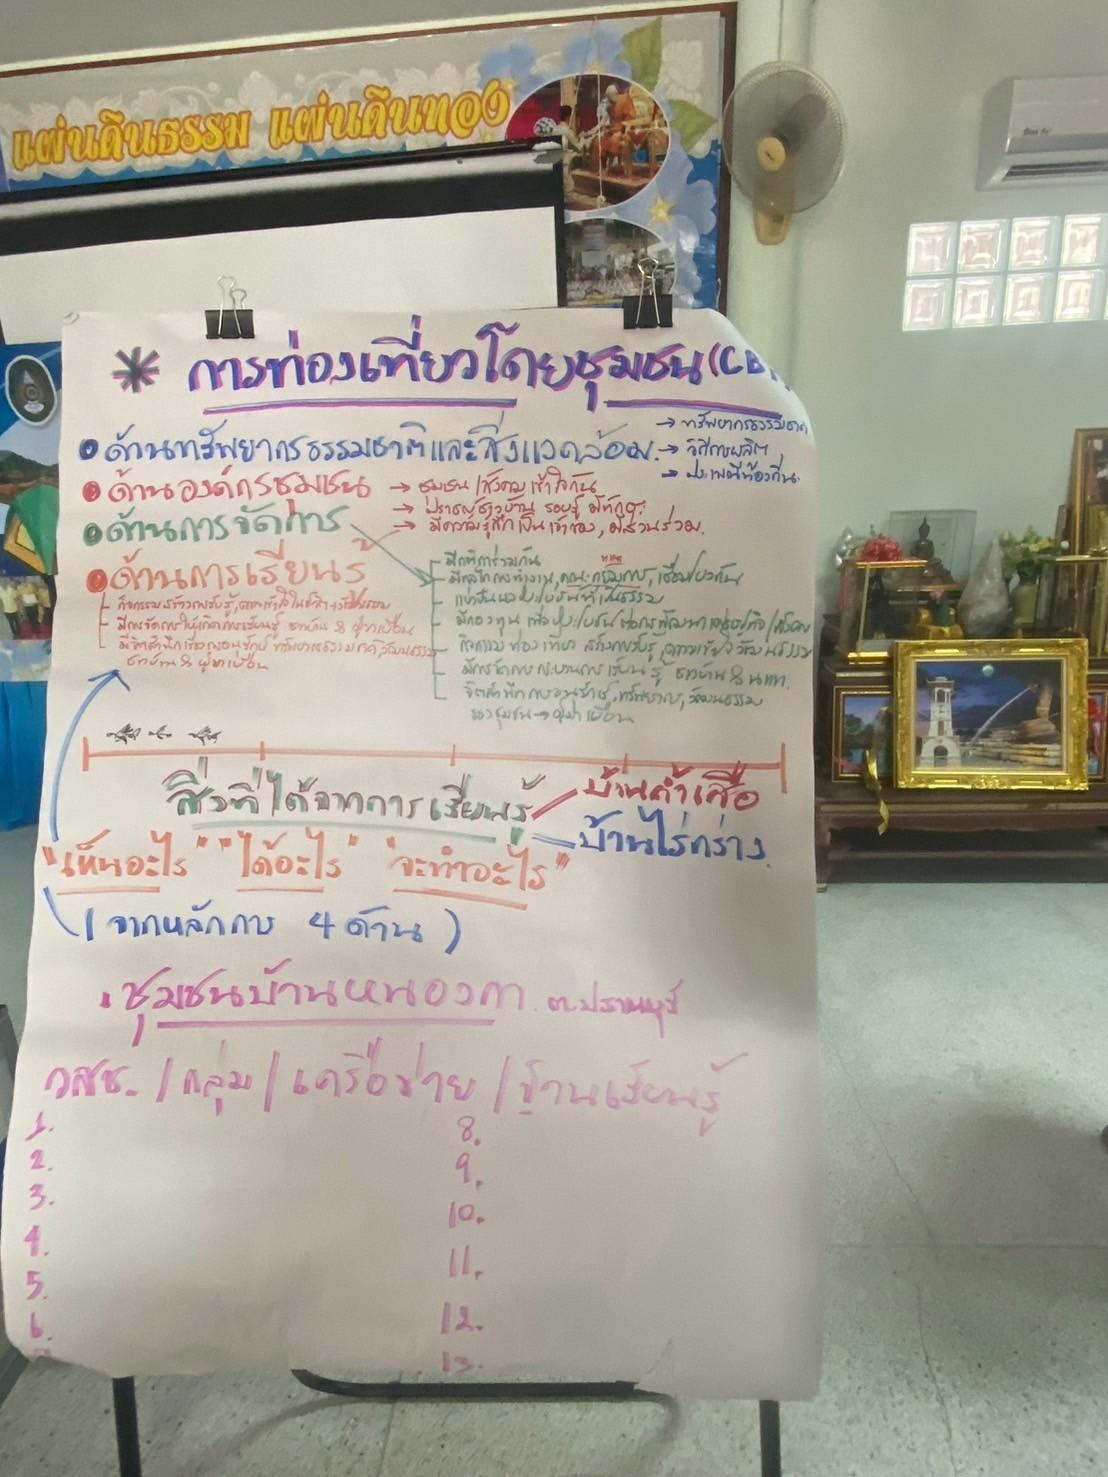 แผ่นดินธรรม แผ่นดินทอง
* การท่องเที่ยวโดยชุมชน (CB
• ด้านทรัพยากรธรรมชาติและสิ่งแวดล้อม. → ทรัพยากรธรรมชาติ
→ วิถีการผลิตฯ
→ ประเพณีท้องถิ่น.
• ด้านองค์กรชุมชน → ชุมชน/สังคม เข้าใจกัน
→ ปราชญ์ชาวบ้าน รอบรู้ มีทักษะ
→ มีความรู้สึกเป็นเจ้าของ, มีส่วนร่วม.
• ด้านการจัดการ
มีกติการ่วมกัน
มีกลไกการทำงาน, คณะกรรมการ, เชื่อมโยงกัน
แบ่งปันผลประโยชน์ที่เป็นธรรม
มีกองทุน เพื่อประโยชน์ต่อการพัฒนาเศรษฐกิจ/สังคม
• ด้านการเรียนรู้
กิจกรรมสร้างการรับรู้, ความเข้าใจในวิถีฯ + วัฒนธรรม
มีการจัดการให้เกิดการเรียนรู้ ชาวบ้าน & ผู้มาเยือน
มีจิตสำนึกเรื่องอนุรักษ์ ทรัพยากรธรรมชาติ วัฒนธรรม
ชาวบ้าน & ผู้มาเยือน
กิจกรรมท่องเที่ยว สร้างการรับรู้, ความเข้าใจวัฒนธรรม
มีการจัดกระบวนการเรียนรู้ ชาวบ้าน & นทท.
จิตสำนึกการอนุรักษ์, ทรัพยากร, วัฒนธรรม
ของชุมชน → ผู้มาเยือน
สิ่งที่ได้จากการเรียนรู้
บ้านถ้ำเสือ
บ้านไร่กร่าง.
"เห็นอะไร" "ได้อะไร" "จะทำอะไร"
(จากหลักการ 4 ด้าน)
• ชุมชนบ้านหนองกา ต.ปราณบุรี
วสช. / กลุ่ม / เครือข่าย / ฐานเรียนรู้
1.
2.
3.
4.
5.
6.
8.
9.
10.
11.
12.
13.